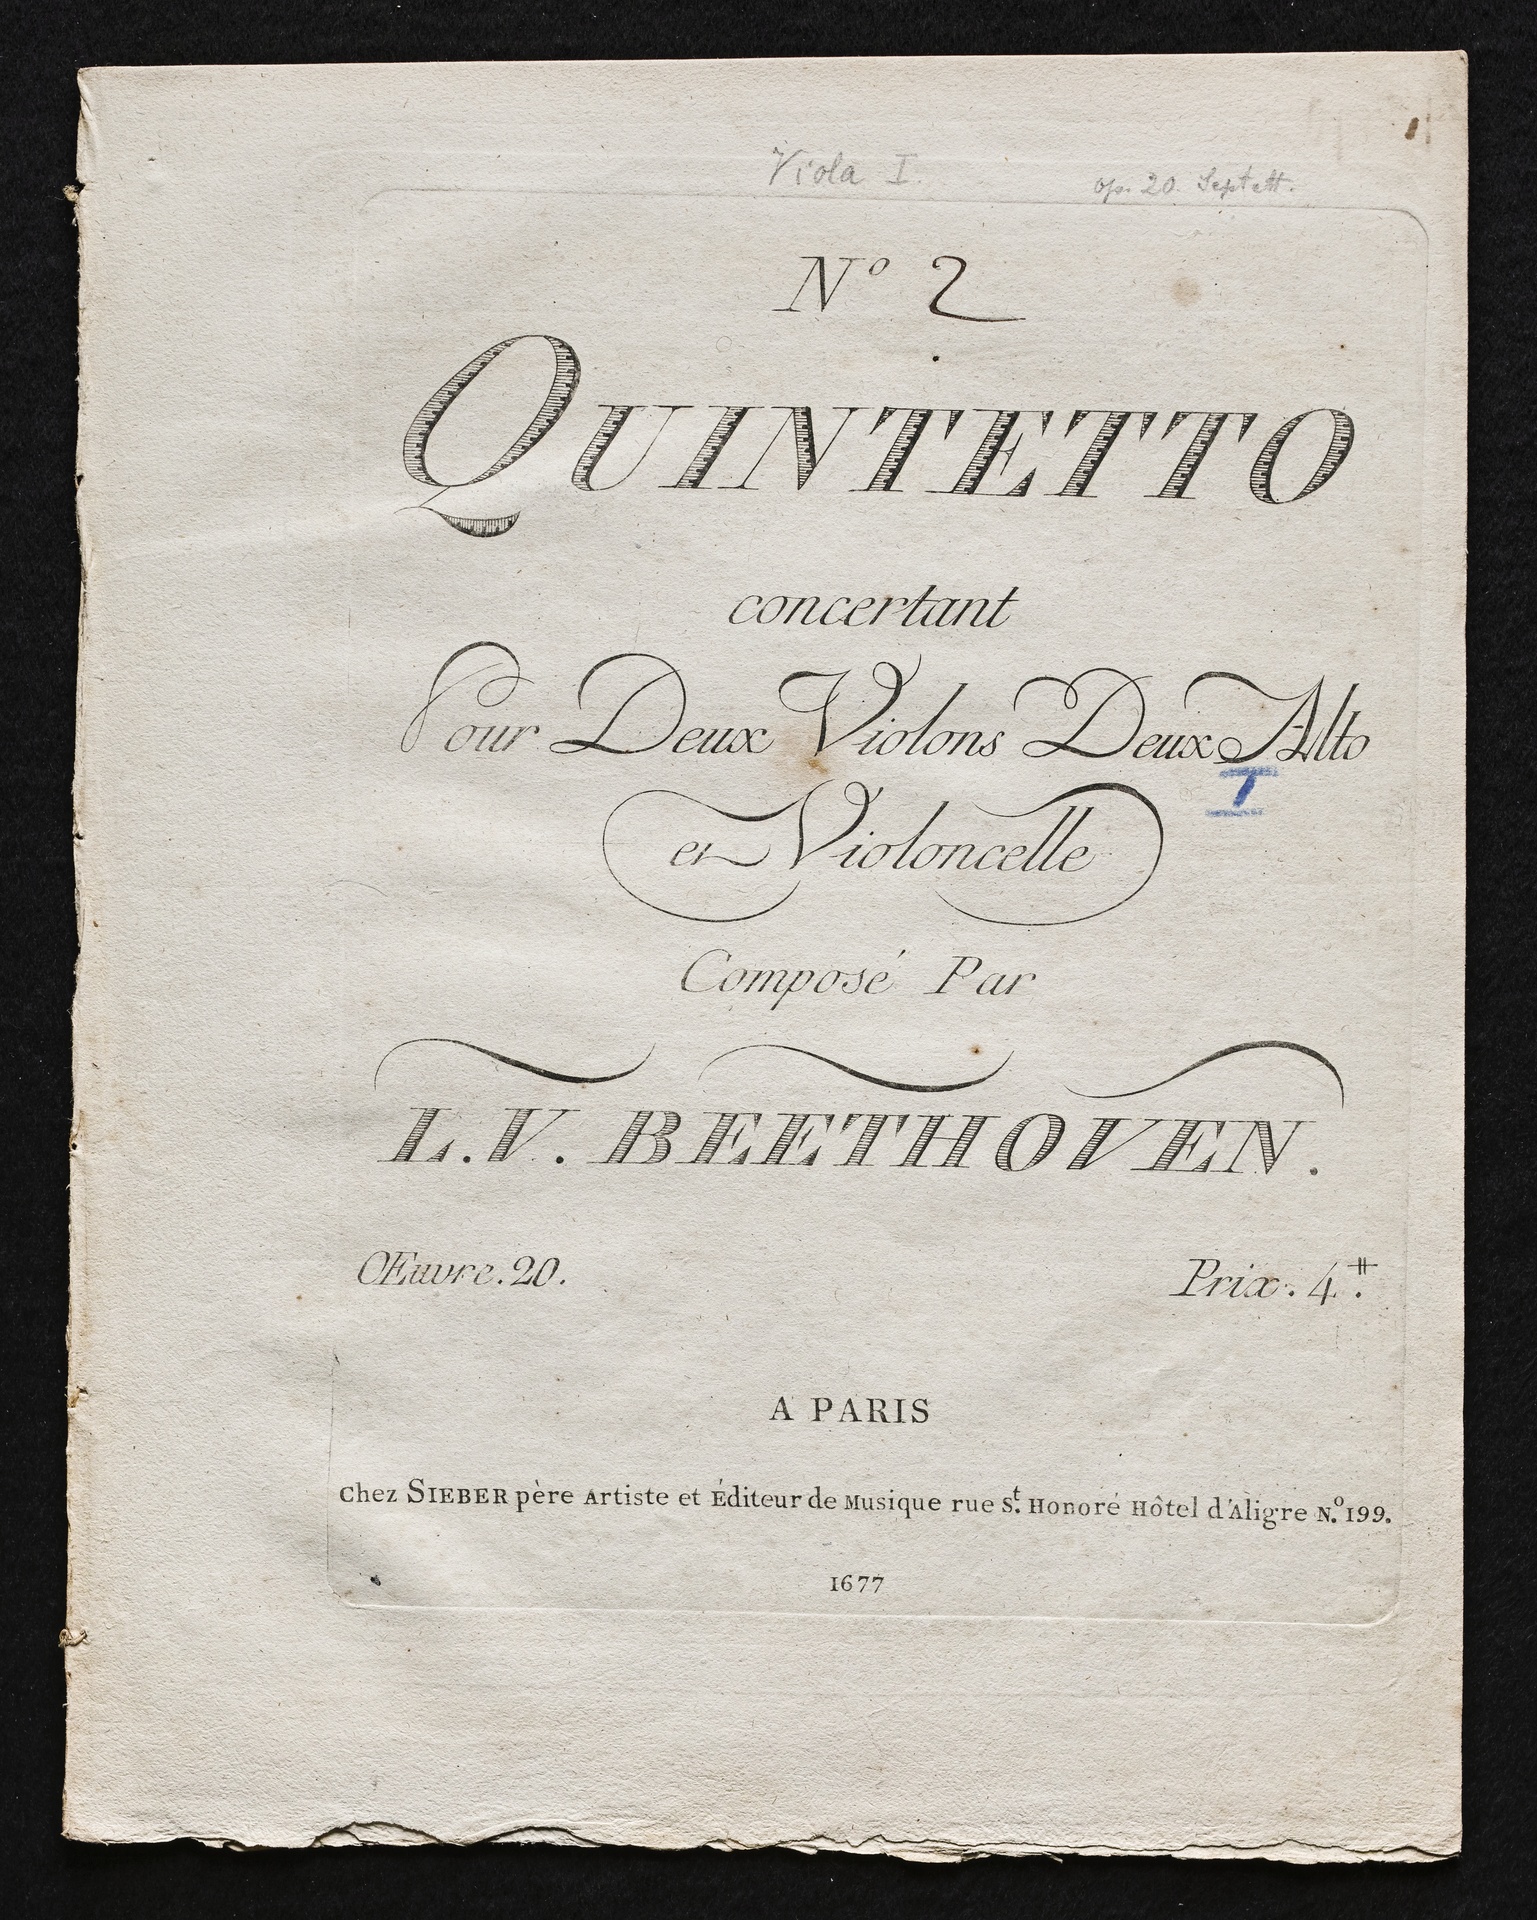 Viola I.
op. 20. Septett.
Nº 2
QUINTETTO
concertant
Pour Deux Violons Deux Alto
I
et Violoncelle
Composé Par
L.V. BEETHOVEN.
Œuvre. 20.
Prix. 4.⧺
A PARIS
chez SIEBER père Artiste et Éditeur de Musique rue St. Honoré Hôtel d'Aligre N.º 199.
1677